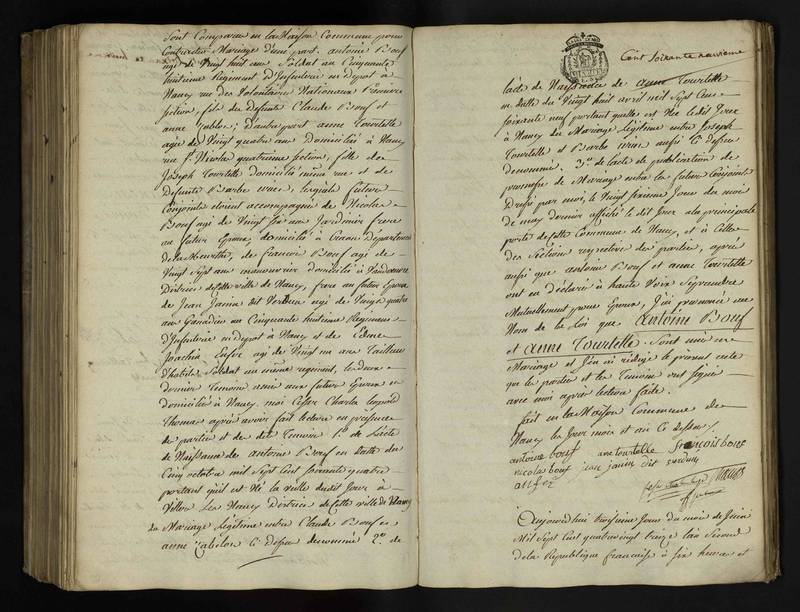 Sont Comparus en la Maison Commune pour
Contracter Mariage d'une part. antoine Bouf
agé de Vingt huit ans Soldat au Cinquante
huitieme Regiment d'Infanterie en Depot à
Nancy rue des Volontaires Nationaux Premiere
section, fils du Defunte Claude Bouf et
anne ; D'autre part anne Tourtelle
agée de Vingt quatre ans Domiciliée à Nancy
rue St Nicolas quatrieme section, fille de
Joseph Tourtelle Domicilié même rue et de
Defunte Barbe ; lesquels futurs
Conjoints etoient accompagnés de Nicolas
Bouf agé de Vingt six ans Jardinier frere
au futur Epoux, domicilié à Departement
de la Meurthe, de francois Bouf agé de
Vingt Sept ans manœuvre domicilié à Vandœuvre
District de cette ville de Nancy, frere au futur Epoux
de Jean Janin dit Verdun agé de Vingt quatre
ans au Cinquante huitieme Regiment
d'Infanterie en depot à Nancy et de
Joachin agé de Vingt un ans Tailleur
d'habits, Soldat au même regiment, les deux
dernier Temoins amis aux futurs Epoux et
domiciliés à Nancy. moi Charles Leopold
Thomas après avoir fait lecture en présence
des parties et des dits Temoins 1o. de l'acte
de Naissance de antoine Bouf en datte du
Cinq octobre mil Sept Cent soixante quatre
portant qu'il est Né la veille dudit Jour à
Villers Les Nancy District de cette ville de Nancy
du Mariage Légitime entre Claude Bouf et
anne Ci dessus denommé 2o. de
Cent Soixante neuvieme
lacte de Naissance de anne Tourtelle
en datte du Vingt huit avril mil Sept Cent
soixante neuf portant quelle est Née ledit Jour
à Nancy du Mariage légitime entre Joseph
Tourtelle et Barbe aussi Ci dessus
denommés. 3o de lacte de publication de
promesse de Mariage entre les futurs Conjoints
Dressé par moi, le Vingt sixieme Jour du mois
de may dernier affiché le dit Jour à la principale
porte de cette Commune de Nancy, et à Celles
des Sections respectives des parties, après
aussi que antoine Bouf et anne Tourtelle
ont eu déclaré à haute Voix Se prendre
Mutuellement pour Epoux, J'ai prononcé au
Nom de la Loi que Antoine Bouf
et Anne Tourtelle Sont unis en
Mariage et J'en ai rédigé le présent acte
que les parties et les Temoins ont signé
avec moi après lecture faite.
fait en la Maison Commune de
Nancy les Jour mois et an Ci dessus
antoine bouf anne tourtelle francois bouf
nicolas bouf jean janin dit verdun
Thomas
Aujourdhui troisieme Jour du mois de Juin
Mil Sept Cent quatre vingt treize l'an Second
de la République francaise à six heures et